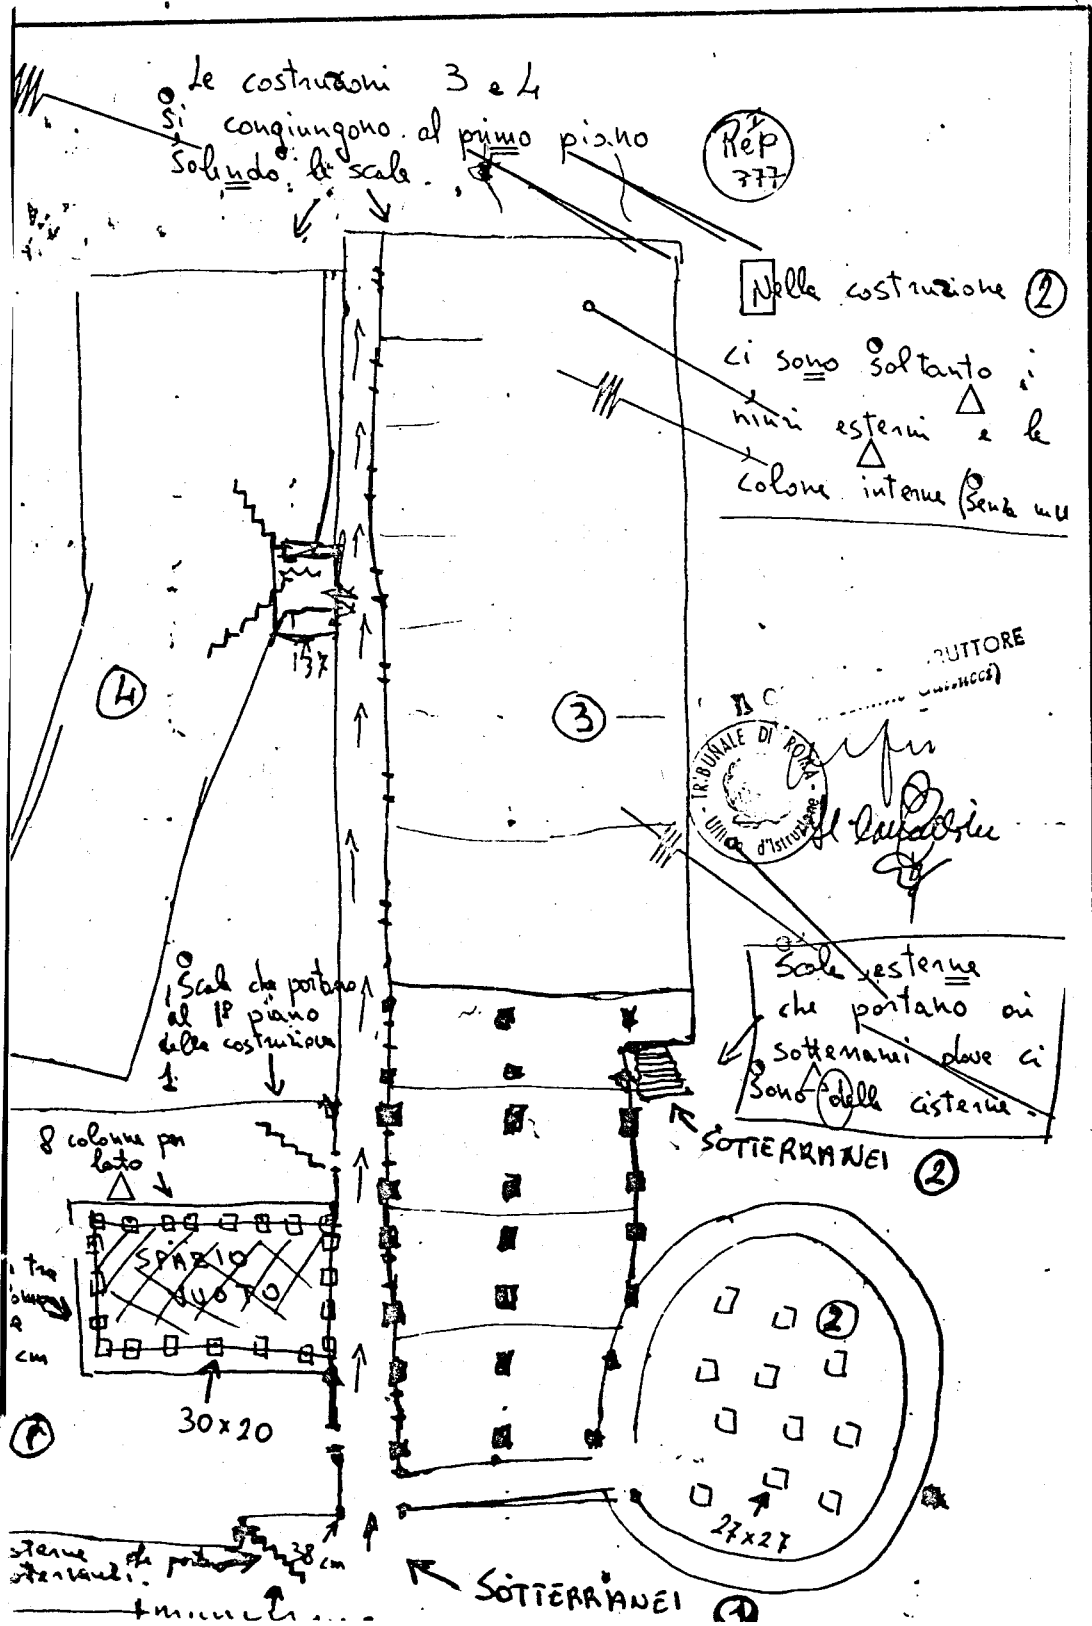 Le costruzioni 3 e 4
si congiungono al primo piano
Solendo le scale.
Rep
377
Nella costruzione 2
ci sono soltanto i
muri esterni e le
colone interne (senza mu
4
137
3
RUTTORE
TRIBUNALE DI ROMA
Ufficio d'Istruzione
Scale che portano
al 1º piano
della costruzione
1.
Scale esterne
che portano ai
sotterranei dove ci
sono delle cisterne.
SOTTERRANEI 2
8 colonne per
lato
SPAZIO
VUOTO
tra
cm
30x20
1
2
27x27
38 cm
sterne che portano
SOTTERRANEI 1